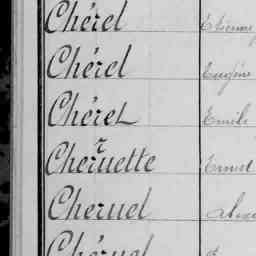 Chérel Etienne
Chérel Eugène
Chérel Emile
Cheruette Ernest
Cheruel
Chéruel